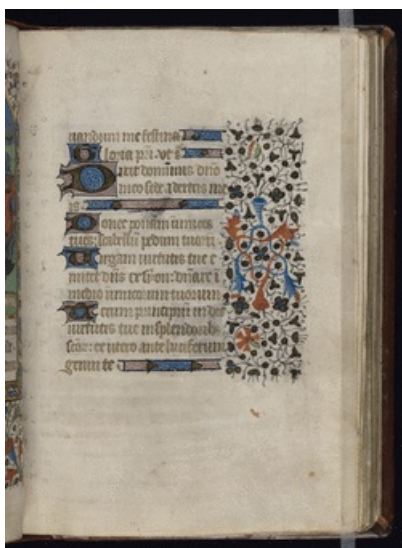 uandum me festina
Gloria pri. 
Dixit dominus dño
meo sede a dextris me
is
Donec ponam inimicos
tuos: scabellum pedum tuorum
Virgam virtutis tue e
mittet dñs ex syon: dñare i
medio inimicorum tuorum
Tecum principium in die
virtutis tue in splendorib
scõr: ex utero ante luciferum
genui te